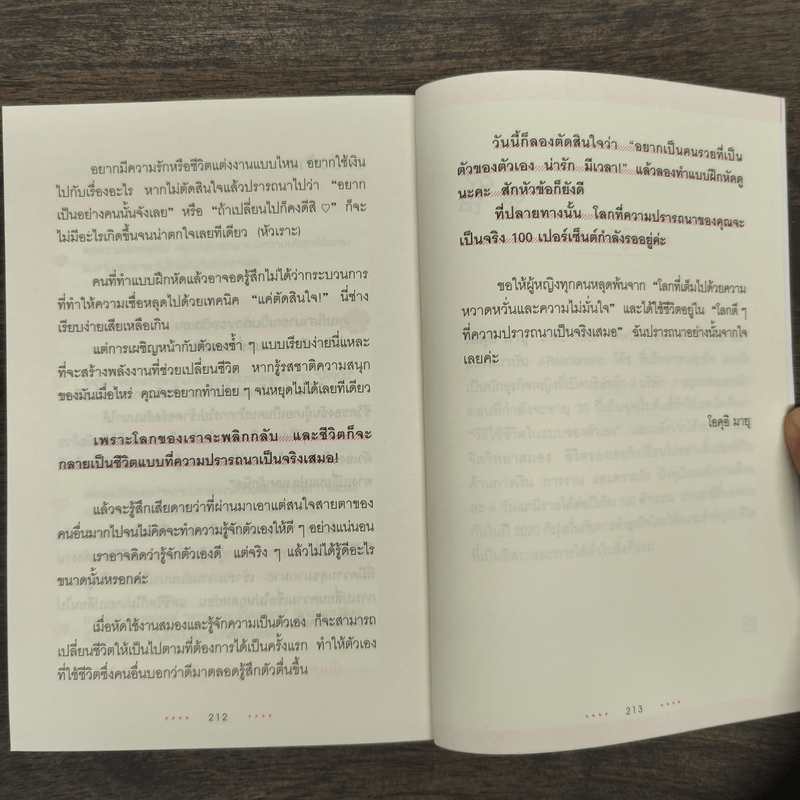 อยากมีความรักหรือชีวิตแต่งงานแบบไหน อยากใช้เงิน
ไปกับเรื่องอะไร หากไม่ตัดสินใจแล้วปรารถนาไปว่า “อยาก
เป็นอย่างคนนั้นจังเลย” หรือ “ถ้าเปลี่ยนไปก็คงดีสิ ♡” ก็จะ
ไม่มีอะไรเกิดขึ้นจนน่าตกใจเลยทีเดียว (หัวเราะ)
คนที่ทำแบบฝึกหัดแล้วอาจอดรู้สึกไม่ได้ว่ากระบวนการ
ที่ทำให้ความเชื่อหลุดไปด้วยเทคนิค “แค่ตัดสินใจ!” นี่ช่าง
เรียบง่ายเสียเหลือเกิน
แต่การเผชิญหน้ากับตัวเองซ้ำ ๆ แบบเรียบง่ายนี่แหละ
ที่จะสร้างพลังงานที่ช่วยเปลี่ยนชีวิต หากรู้รสชาติความสนุก
ของมันเมื่อไหร่ คุณจะอยากทำบ่อย ๆ จนหยุดไม่ได้เลยทีเดียว
เพราะโลกของเราจะพลิกกลับ และชีวิตก็จะ
กลายเป็นชีวิตแบบที่ความปรารถนาเป็นจริงเสมอ!
แล้วจะรู้สึกเสียดายว่าที่ผ่านมาเอาแต่สนใจสายตาของ
คนอื่นมากไปจนไม่คิดจะทำความรู้จักตัวเองให้ดี ๆ อย่างแน่นอน
เราอาจคิดว่ารู้จักตัวเองดี แต่จริง ๆ แล้วไม่ได้รู้ดีอะไร
ขนาดนั้นหรอกค่ะ
เมื่อหัดใช้งานสมองและรู้จักความเป็นตัวเอง ก็จะสามารถ
เปลี่ยนชีวิตให้เป็นไปตามที่ต้องการได้เป็นครั้งแรก ทำให้ตัวเอง
ที่ใช้ชีวิตซึ่งคนอื่นบอกว่าดีมาตลอดรู้สึกตัวตื่นขึ้น
212
วันนี้ก็ลองตัดสินใจว่า “อยากเป็นคนรวยที่เป็น
ตัวของตัวเอง น่ารัก มีเวลา!” แล้วลองทำแบบฝึกหัดดู
นะคะ สักหัวข้อก็ยังดี
ที่ปลายทางนั้น โลกที่ความปรารถนาของคุณจะ
เป็นจริง 100 เปอร์เซ็นต์กำลังรออยู่ค่ะ
ขอให้ผู้หญิงทุกคนหลุดพ้นจาก “โลกที่เต็มไปด้วยความ
หวาดหวั่นและความไม่มั่นใจ” และได้ใช้ชีวิตอยู่ใน “โลกดี ๆ
ที่ความปรารถนาเป็นจริงเสมอ” ฉันปรารถนาอย่างนั้นจากใจ
เลยค่ะ
โอคุอิ มายุ
213